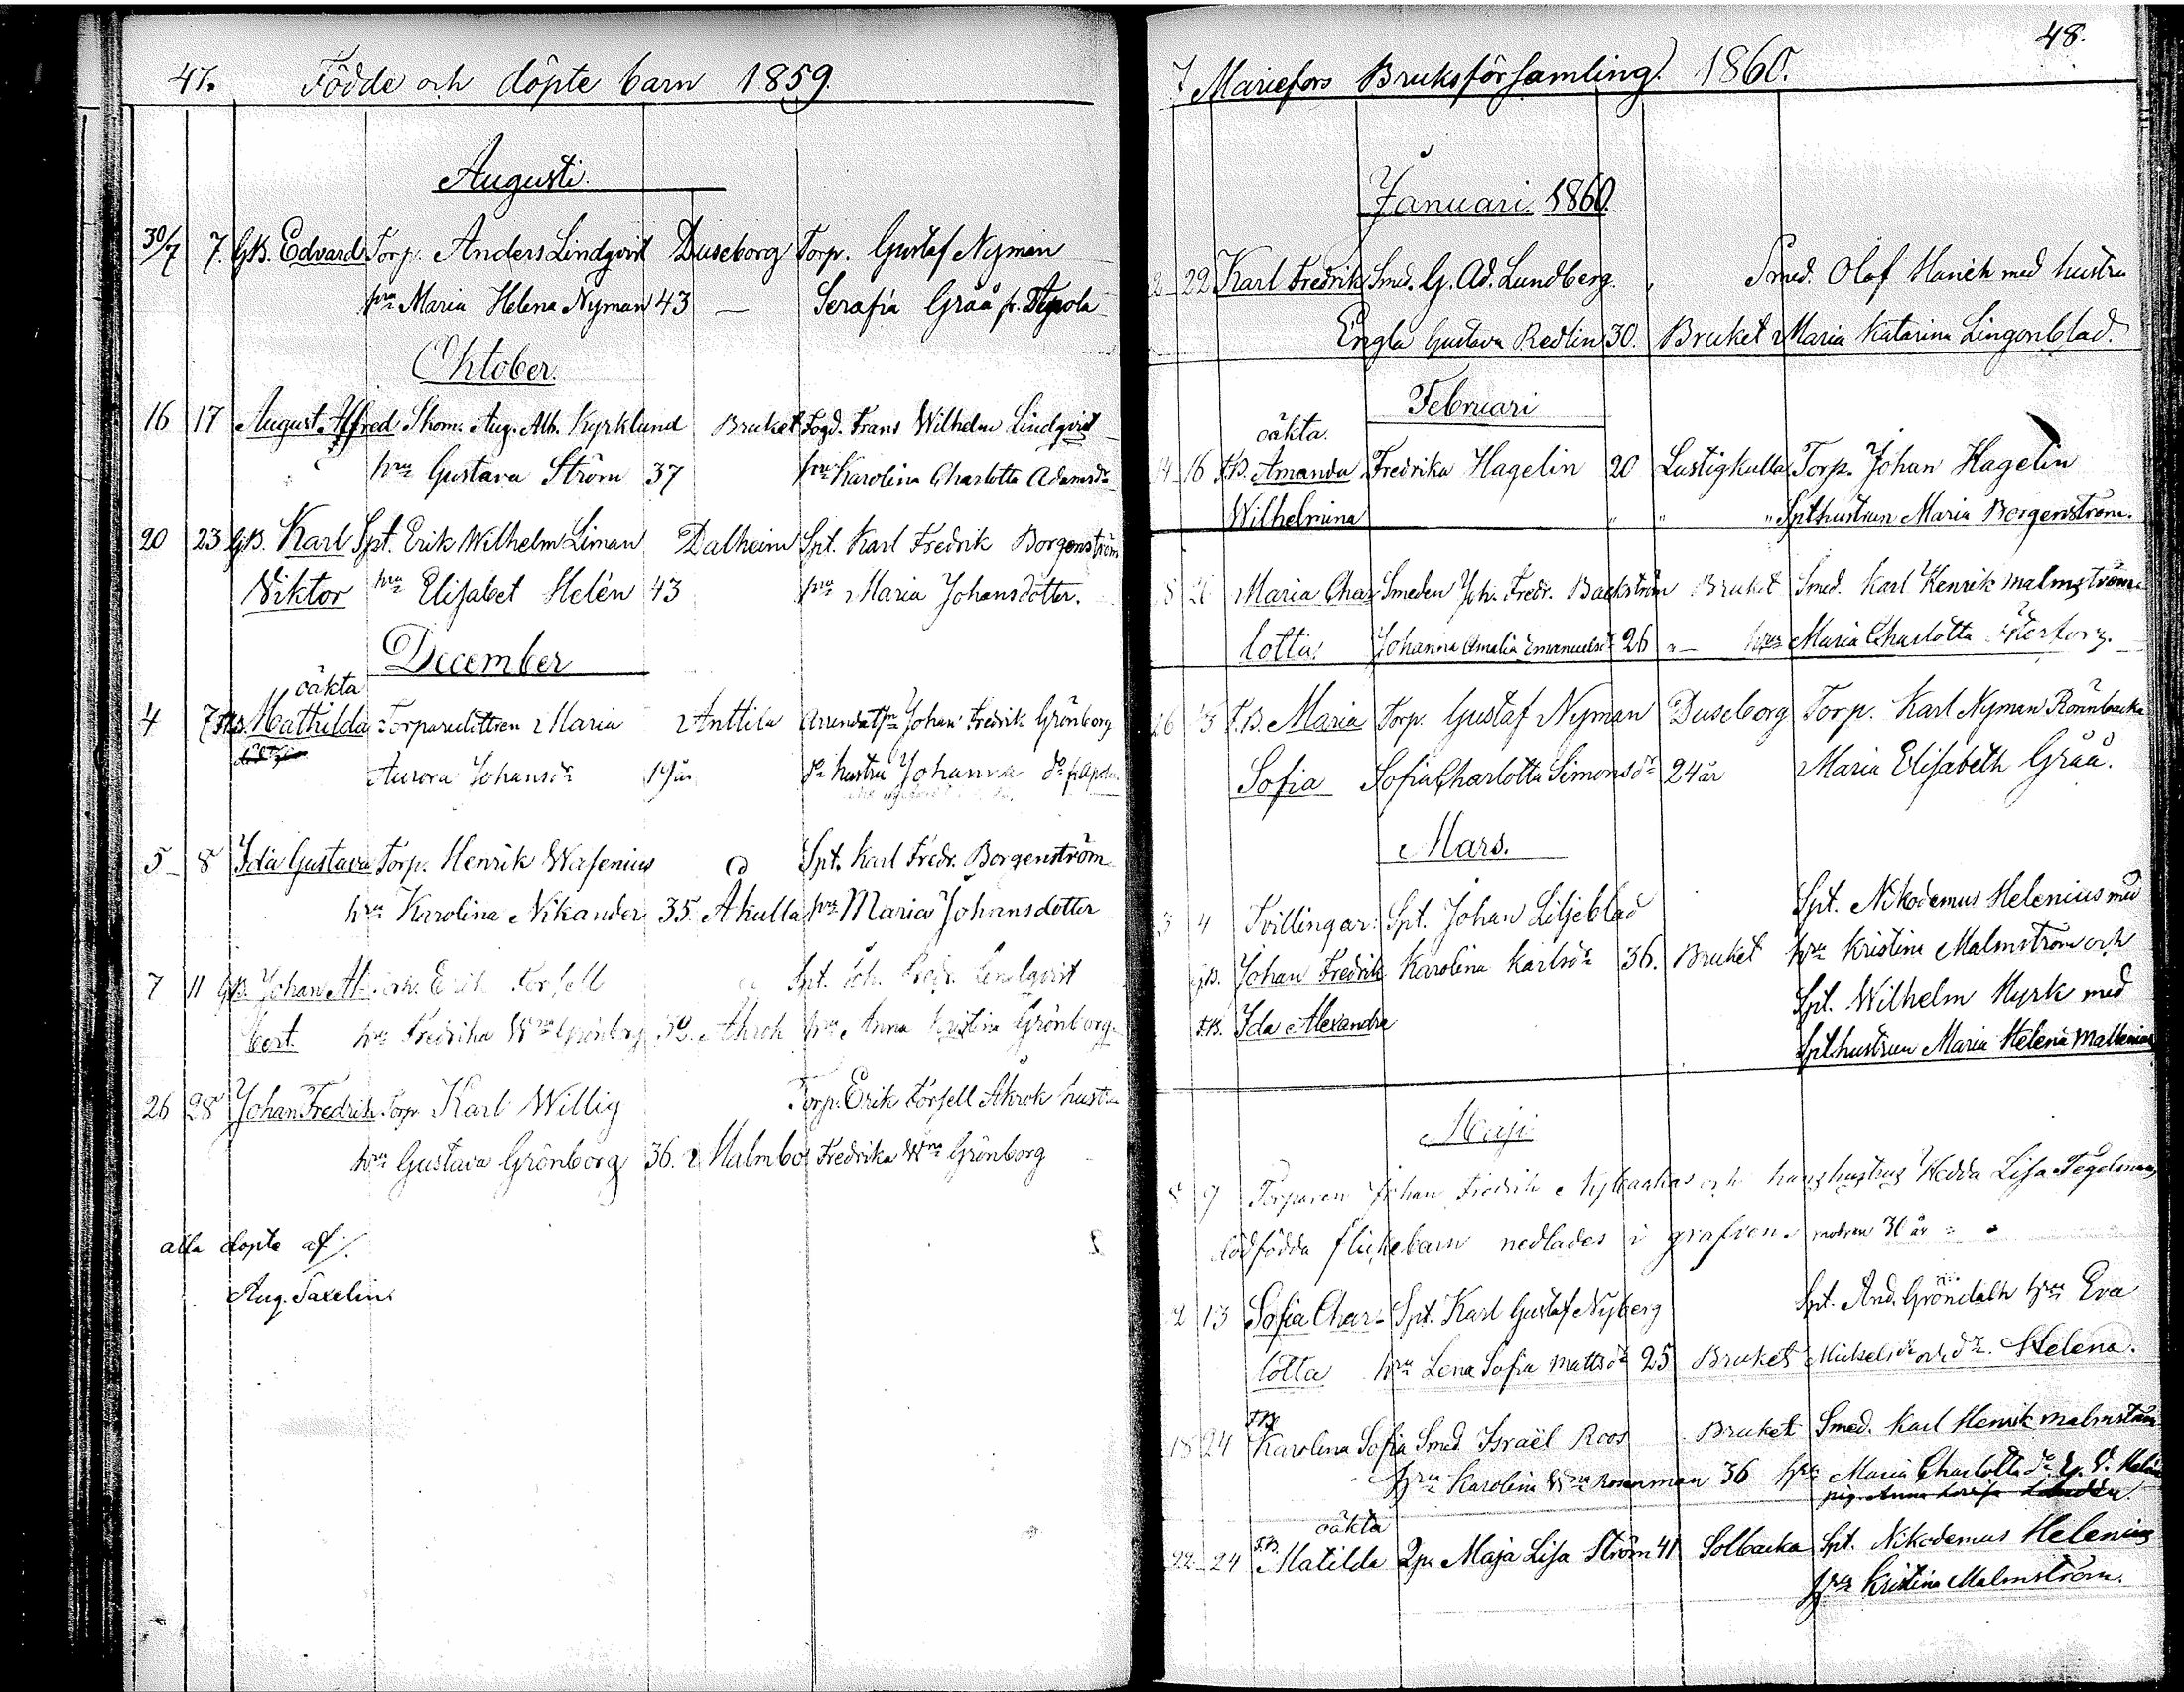 47. Födde och döpte barn 1859.
Augusti.
30/7 7. GB. Edvard Torp. Anders Lindqvist Duseborg Torp. Gustaf Nyman
hru Maria Helena Nyman 43 — Serafia Gråå fr.
Oktober.
16 17 August Alfred Skom. Aug. Alb. Kyrklund Bruket Fogd. Frans Wilhelm Lindqvist
hru Gustava Ström 37 hru Karolina Charlotta Adamsdr
20 23 GB. Karl Spt. Erik Wilhelm Liman Dalheim Spt. Karl Fredrik Borgenström
Viktor hru Elisabet Helén 43 hru Maria Johansdotter.
December
oäkta
4 7 Mathilda Torparedottren Maria Anttila Johan Fredrik Grönborg
Aurora Johansdr 19 år hustru Johanna do
5 8 Ida Gustava Torp. Henrik Wasenius Spt. Karl Fredr. Borgenström
hru Karolina Nikander 35 Åkulla hru Maria Johansdotter
7 11 GB. Johan Al- Erik Forsell Spt. Joh. Fredr. Lindqvist
bert. hru Fredrika Wna Grönborg 32. Åkrok hru Anna Kristina Grönborg
26 28 Johan Fredrik Torp. Karl Willig Torp. Erik Forsell Åkrok hustru
hru Gustava Grönborg 36. Malmbo Fredrika Wna Grönborg
alla döpte af
Aug. Taxelin.
48.
I Mariefors Bruksförsamling. 1860.
Januari. 1860.
2 22 Karl Fredrik Smed. G. Ad. Lundberg. Smed. Olof Hanich med hustru
Engla Gustava Redlin 30. Bruket Maria Katarina Lingonblad.
Februari
oäkta.
14 16 F.B. Amanda Fredrika Hagelin 20 Lustigkulla Torp. Johan Hagelin
Wilhelmina " " " Spthustrun Maria Borgenström.
Maria Char- Smeden Joh. Fredr. Backström Bruket Smed. Karl Henrik Malmström
lotta. Johanna Amalia Emanuelsdr 26 hru Maria Charlotta
26 F.B. Maria Torp. Gustaf Nyman Duseborg Torp. Karl Nyman Rönnbacka
Sofia Sofia Charlotta Simonsdr 24 år Maria Elisabeth Gråå.
Mars.
3 4 Tvillingar: Spt. Johan Liljeblad Spt. Nikodemus Helenius med
GB. Johan Fredrik Karolina Karlsdr 36. Bruket hru Kristina Malmström och
F.B. Ida Alexandra Spt. Wilhelm Myrk med
Spthustrun Maria Helena
Maji
8 9 Torparen Johan Fredrik och hans hustrus Hedda Lisa Tegelman
dödfödda flickebarn nedlades i grafven. modren 30 år
2 13 Sofia Char- Spt. Karl Gustaf Nyberg Spt. And. Gröndalh hru Eva
lotta hru Lena Sofia Mattsdr 25 Bruket Mickelsdr och dr. Helena.
F.B.
18 24 Karolina Sofia Smed Israël Roos Bruket Smed. Karl Henrik Malmström
hru Karolina Wna Rosenman 36 hru Maria Charlotta
pig. Anna Lovisa
oäkta
F.B.
22 24 Matilda Maja Lisa Ström 41 Solbacka Spt. Nikodemus Helenius
hru Kristina Malmström.